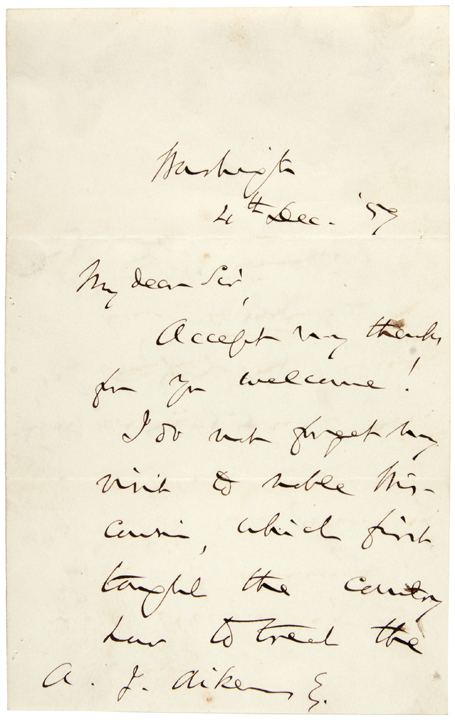 Washington
4th Dec. '59
My dear Sir,
Accept my thanks
for yr welcome!
I do not forget my
visit to noble Wis-
consin, which first
taught the country
how to treat the
A. J. Aikens Esq.